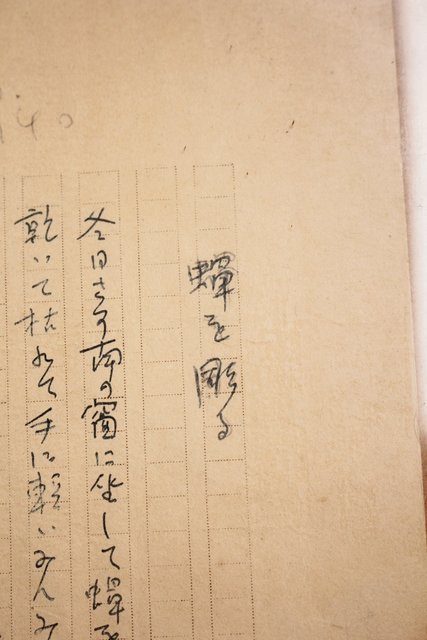 蟬を彫る
冬日さす南の窗に坐して蟬を
乾いて枯れて手に軽いみんみ